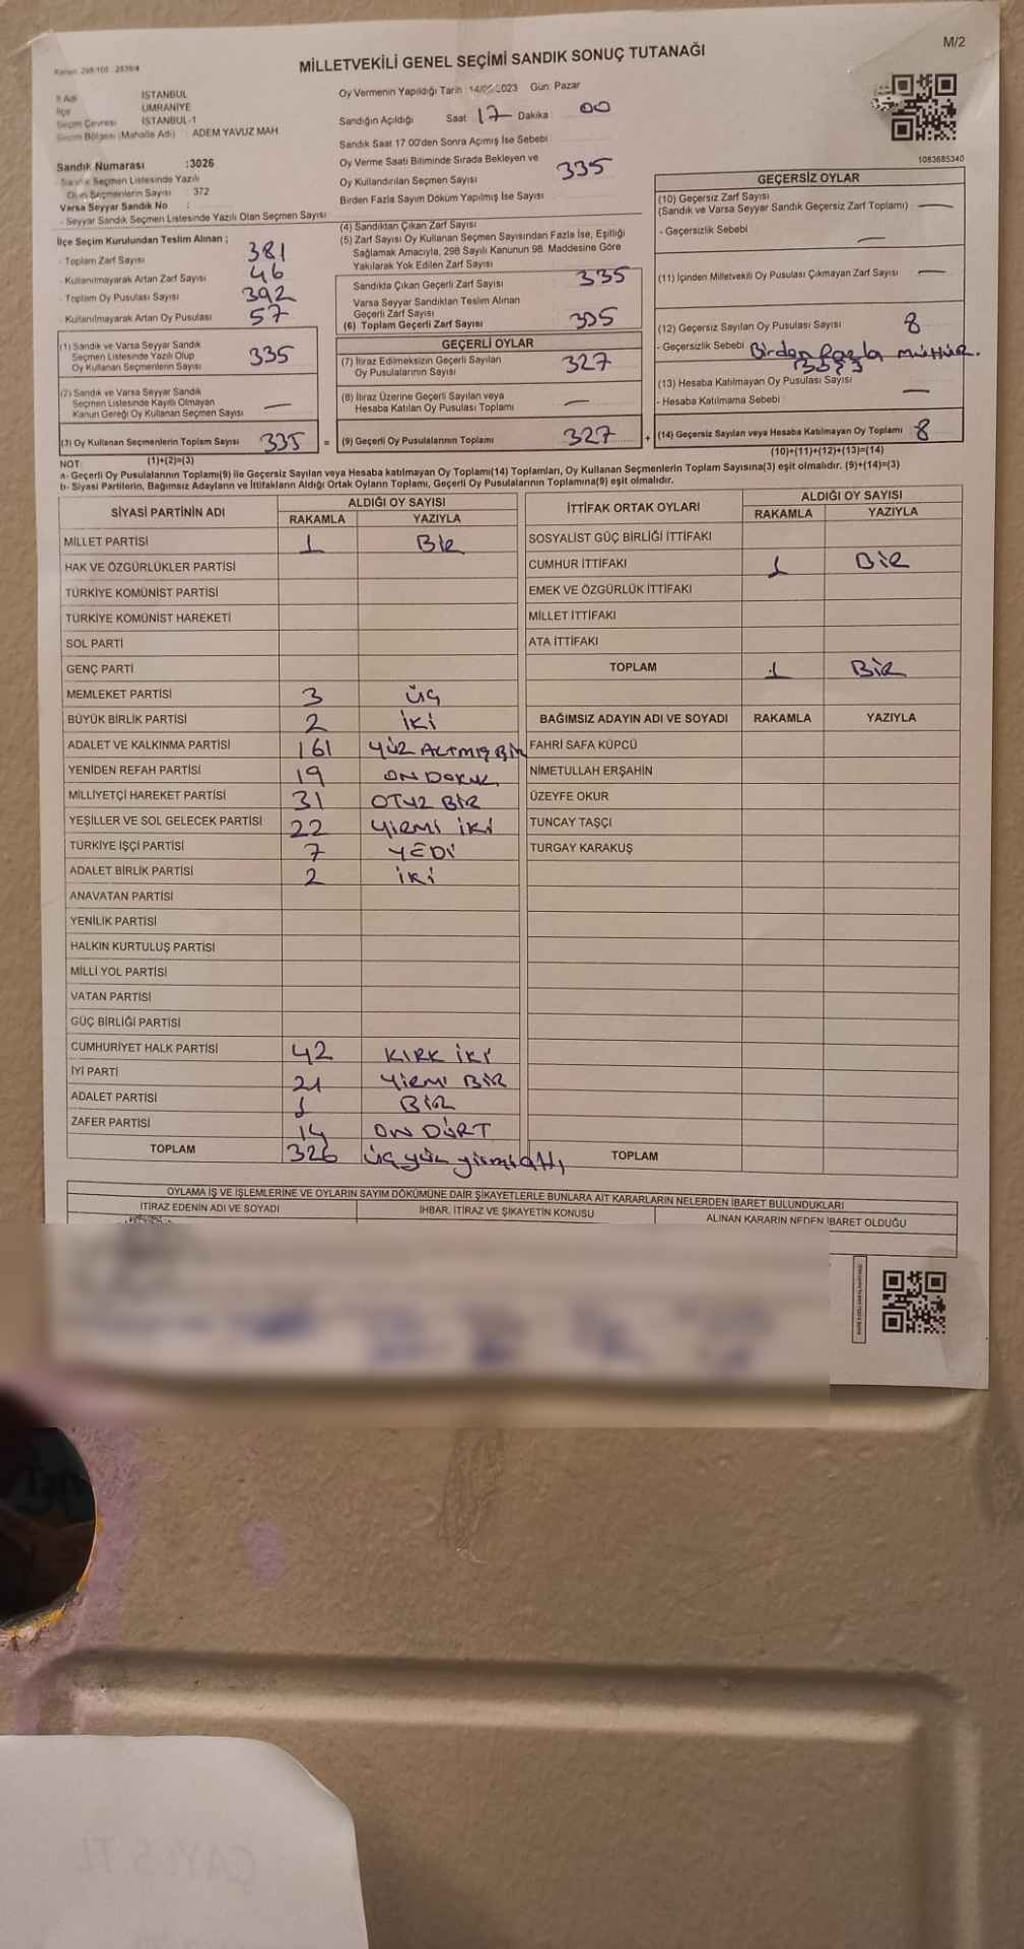 M/2
MİLLETVEKİLİ GENEL SEÇİMİ SANDIK SONUÇ TUTANAĞI
İl Adı İSTANBUL
İlçe ÜMRANİYE
Seçim Çevresi İSTANBUL-1
Seçim Bölgesi (Mahalle Adı) : ADEM YAVUZ MAH.
Sandık Numarası :3026
Sandık Seçmen Listesinde Yazılı
Olan Seçmenlerin Sayısı : 372
Varsa Seyyar Sandık No :
- Seyyar Sandık Seçmen Listesinde Yazılı Olan Seçmen Sayısı
Oy Vermenin Yapıldığı Tarih : 14/05/2023 Gün: Pazar
Sandığın Açıldığı Saat 17 Dakika 00
Sandık Saat 17 00'den Sonra Açımış İse Sebebi
Oy Verme Saati Bitiminde Sırada Bekleyen ve
Oy Kullandırılan Seçmen Sayısı 335
Birden Fazla Sayım Döküm Yapılmış İse Sayısı
1083685340
İlçe Seçim Kurulundan Teslim Alınan ;
- Toplam Zarf Sayısı 381
- Kullanılmayarak Artan Zarf Sayısı 46
- Toplam Oy Pusulası Sayısı 392
- Kullanılmayarak Artan Oy Pusulası 57
(1) Sandık ve Varsa Seyyar Sandık
Seçmen Listesinde Yazılı Olup
Oy Kullanan Seçmenlerin Sayısı 335
(2) Sandık ve Varsa Seyyar Sandık
Seçmen Listesinde Kayıtlı Olmayan
Kanun Gereği Oy Kullanan Seçmen Sayısı —
(3) Oy Kullanan Seçmenlerin Toplam Sayısı 335 =
(1)+(2)=(3)
(4) Sandıktan Çıkan Zarf Sayısı
(5) Zarf Sayısı Oy Kullanan Seçmen Sayısından Fazla İse, Eşitliği
Sağlamak Amacıyla, 298 Sayılı Kanunun 98. Maddesine Göre
Yakılarak Yok Edilen Zarf Sayısı
Sandıkta Çıkan Geçerli Zarf Sayısı 335
Varsa Seyyar Sandıktan Teslim Alınan
Geçerli Zarf Sayısı
(6) Toplam Geçerli Zarf Sayısı 335
GEÇERLİ OYLAR
(7) İtiraz Edilmeksizin Geçerli Sayılan
Oy Pusulalarının Sayısı 327
(8) İtiraz Üzerine Geçerli Sayılan veya
Hesaba Katılan Oy Pusulası Toplamı —
(9) Geçerli Oy Pusulalarının Toplamı 327 +
GEÇERSİZ OYLAR
(10) Geçersiz Zarf Sayısı
(Sandık ve Varsa Seyyar Sandık Geçersiz Zarf Toplamı) —
- Geçersizlik Sebebi —
(11) İçinden Milletvekili Oy Pusulası Çıkmayan Zarf Sayısı —
(12) Geçersiz Sayılan Oy Pusulası Sayısı 8
- Geçersizlik Sebebi Birden fazla mühür.
(13) Hesaba Katılmayan Oy Pusulası Sayısı
- Hesaba Katılmama Sebebi —
(14) Geçersiz Sayılan veya Hesaba Katılmayan Oy Toplamı 8
(10)+(11)+(12)+(13)=(14)
NOT
a- Geçerli Oy Pusulalarının Toplamı(9) ile Geçersiz Sayılan veya Hesaba katılmayan Oy Toplamı(14) Toplamları, Oy Kullanan Seçmenlerin Toplam Sayısına(3) eşit olmalıdır. (9)+(14)=(3)
b- Siyasi Partilerin, Bağımsız Adayların ve İttifakların Aldığı Ortak Oyların Toplamı, Geçerli Oy Pusulalarının Toplamına(9) eşit olmalıdır.
SİYASİ PARTİNİN ADI ALDIĞI OY SAYISI
RAKAMLA YAZIYLA
MİLLET PARTİSİ 1 BİR
HAK VE ÖZGÜRLÜKLER PARTİSİ
TÜRKİYE KOMÜNİST PARTİSİ
TÜRKİYE KOMÜNİST HAREKETİ
SOL PARTİ
GENÇ PARTİ
MEMLEKET PARTİSİ 3 ÜÇ
BÜYÜK BİRLİK PARTİSİ 2 İKİ
ADALET VE KALKINMA PARTİSİ 161 YÜZ ALTMIŞ BİR
YENİDEN REFAH PARTİSİ 19 ON DOKUZ
MİLLİYETÇİ HAREKET PARTİSİ 31 OTUZ BİR
YEŞİLLER VE SOL GELECEK PARTİSİ 22 YİRMİ İKİ
TÜRKİYE İŞÇİ PARTİSİ 7 YEDİ
ADALET BİRLİK PARTİSİ 2 İKİ
ANAVATAN PARTİSİ
YENİLİK PARTİSİ
HALKIN KURTULUŞ PARTİSİ
MİLLİ YOL PARTİSİ
VATAN PARTİSİ
GÜÇ BİRLİĞİ PARTİSİ
CUMHURİYET HALK PARTİSİ 42 KIRK İKİ
İYİ PARTİ 21 YİRMİ BİR
ADALET PARTİSİ 1 BİR
ZAFER PARTİSİ 14 ON DÖRT
TOPLAM 326 üçyüz yirmialtı
İTTİFAK ORTAK OYLARI ALDIĞI OY SAYISI
RAKAMLA YAZIYLA
SOSYALİST GÜÇ BİRLİĞİ İTTİFAKI
CUMHUR İTTİFAKI 1 BİR
EMEK VE ÖZGÜRLÜK İTTİFAKI
MİLLET İTTİFAKI
ATA İTTİFAKI
TOPLAM 1 BİR
BAĞIMSIZ ADAYIN ADI VE SOYADI RAKAMLA YAZIYLA
FAHRİ SAFA KÜPCÜ
NİMETULLAH ERŞAHİN
ÜZEYFE OKUR
TUNCAY TAŞÇI
TURGAY KARAKUŞ
TOPLAM
OYLAMA İŞ VE İŞLEMLERİNE VE OYLARIN SAYIM DÖKÜMÜNE DAİR ŞİKAYETLERLE BUNLARA AİT KARARLARIN NELERDEN İBARET BULUNDUKLARI
İTİRAZ EDENİN ADI VE SOYADI İHBAR, İTİRAZ VE ŞİKAYETİN KONUSU ALINAN KARARIN NEDEN İBARET OLDUĞU